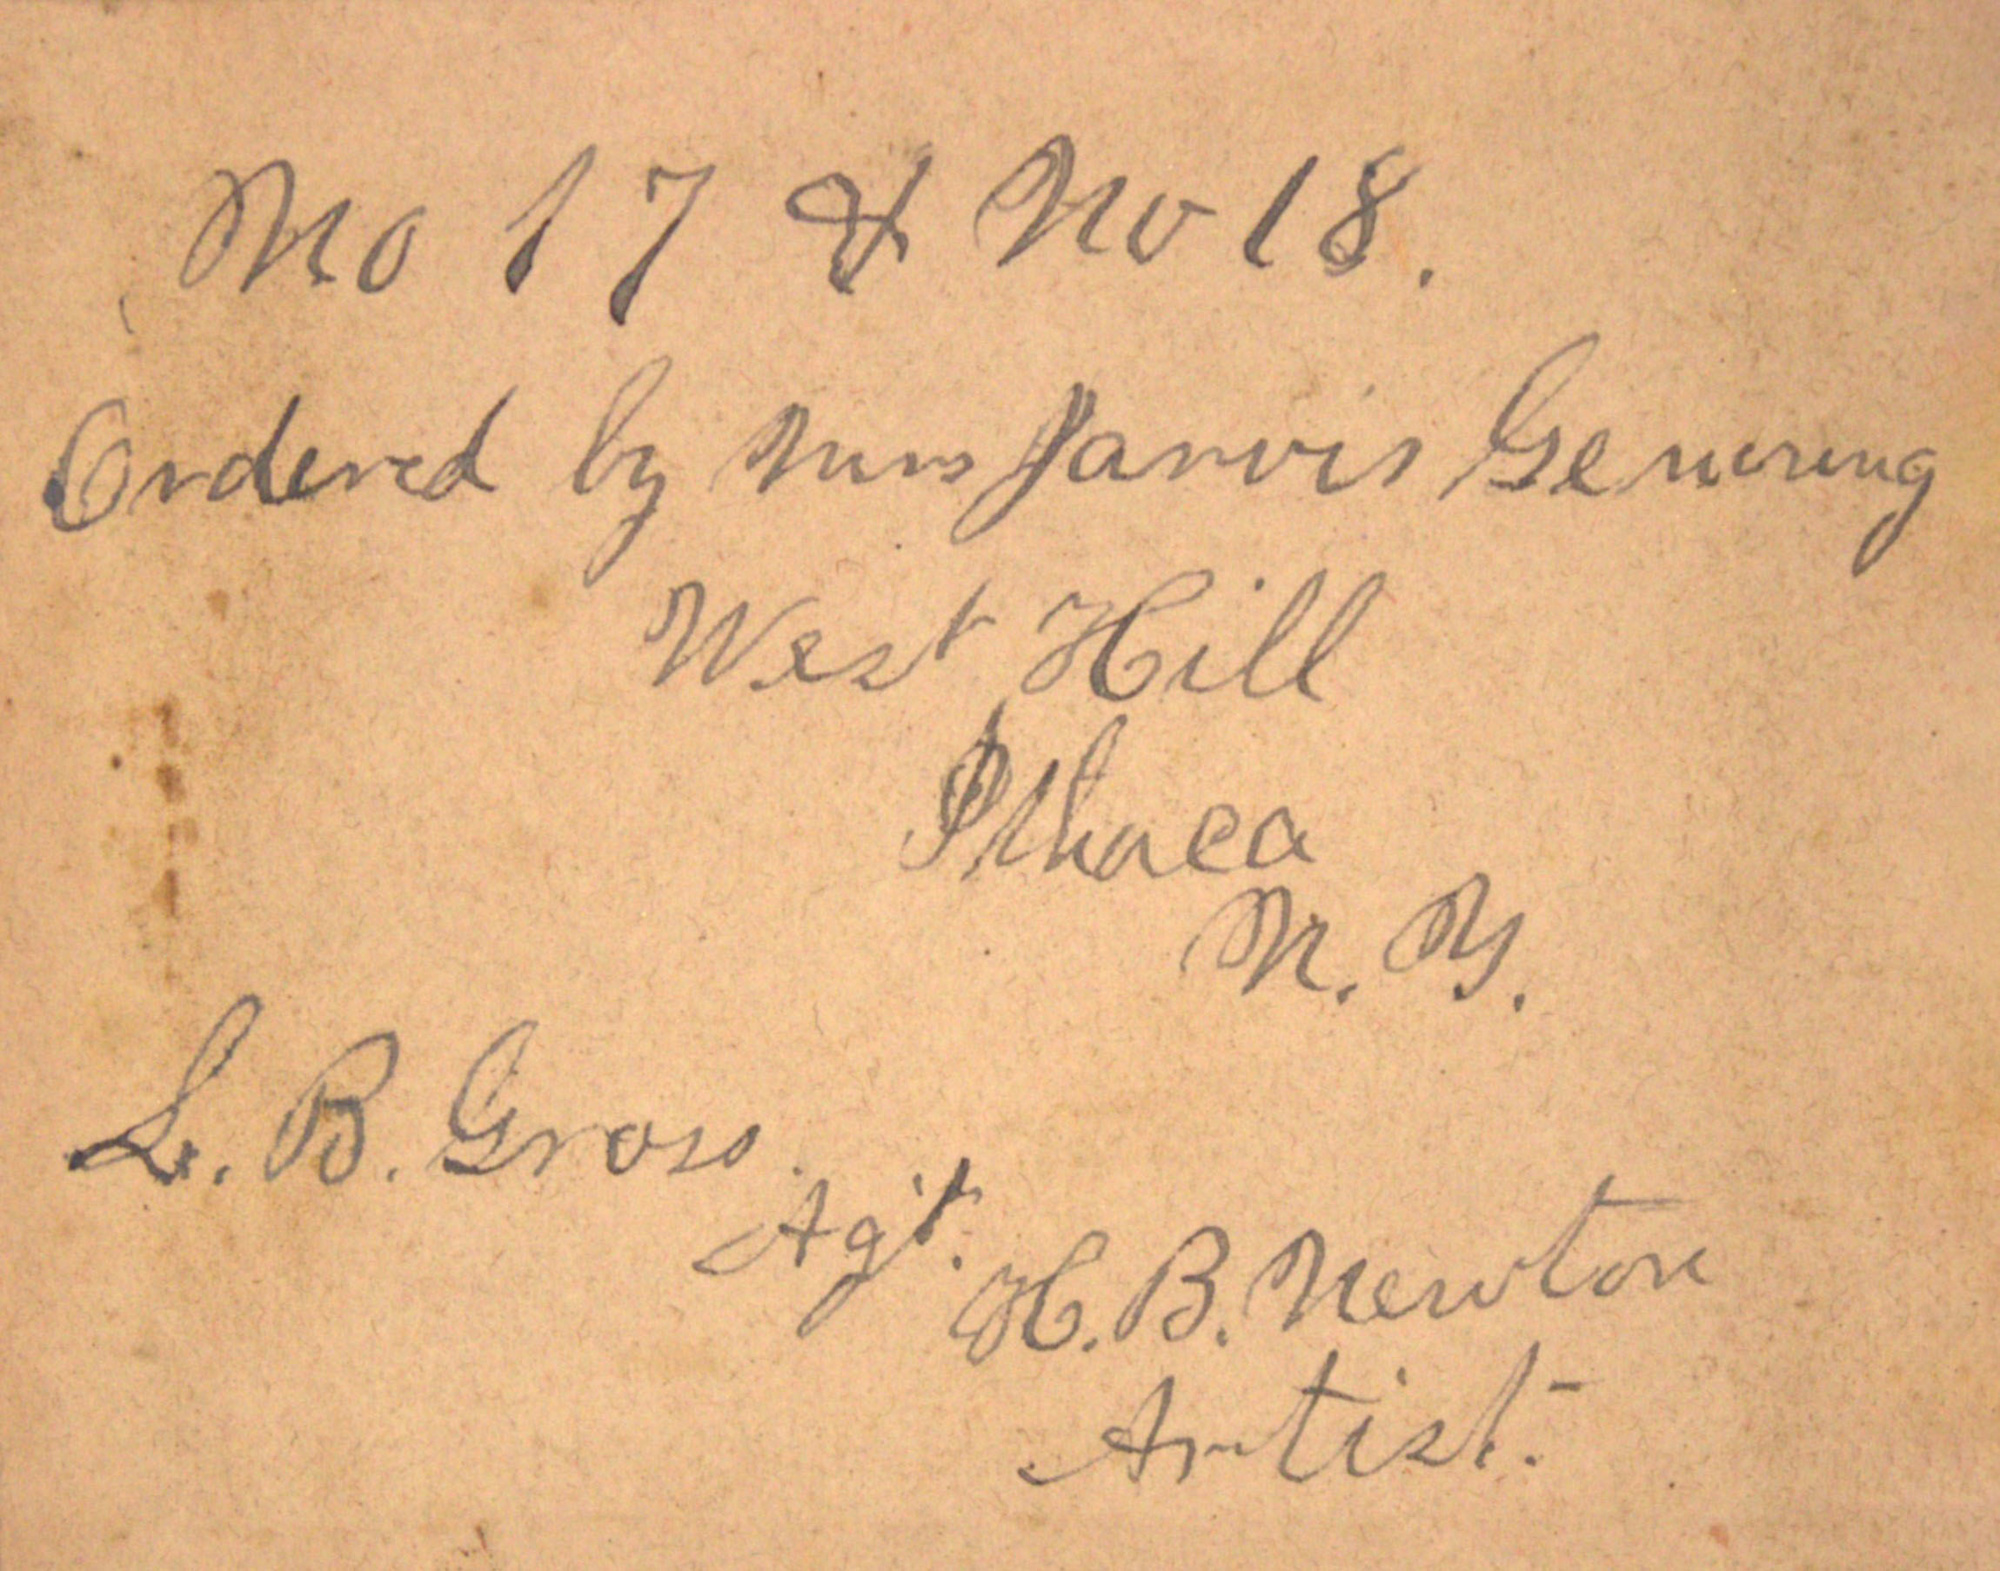 No 17 & No 18.
Ordered by Mrs Jarvis
West Hill
Ithaca
N. Y.
L. B. Gross.
Ag't.
H. B. Newton
Artist.